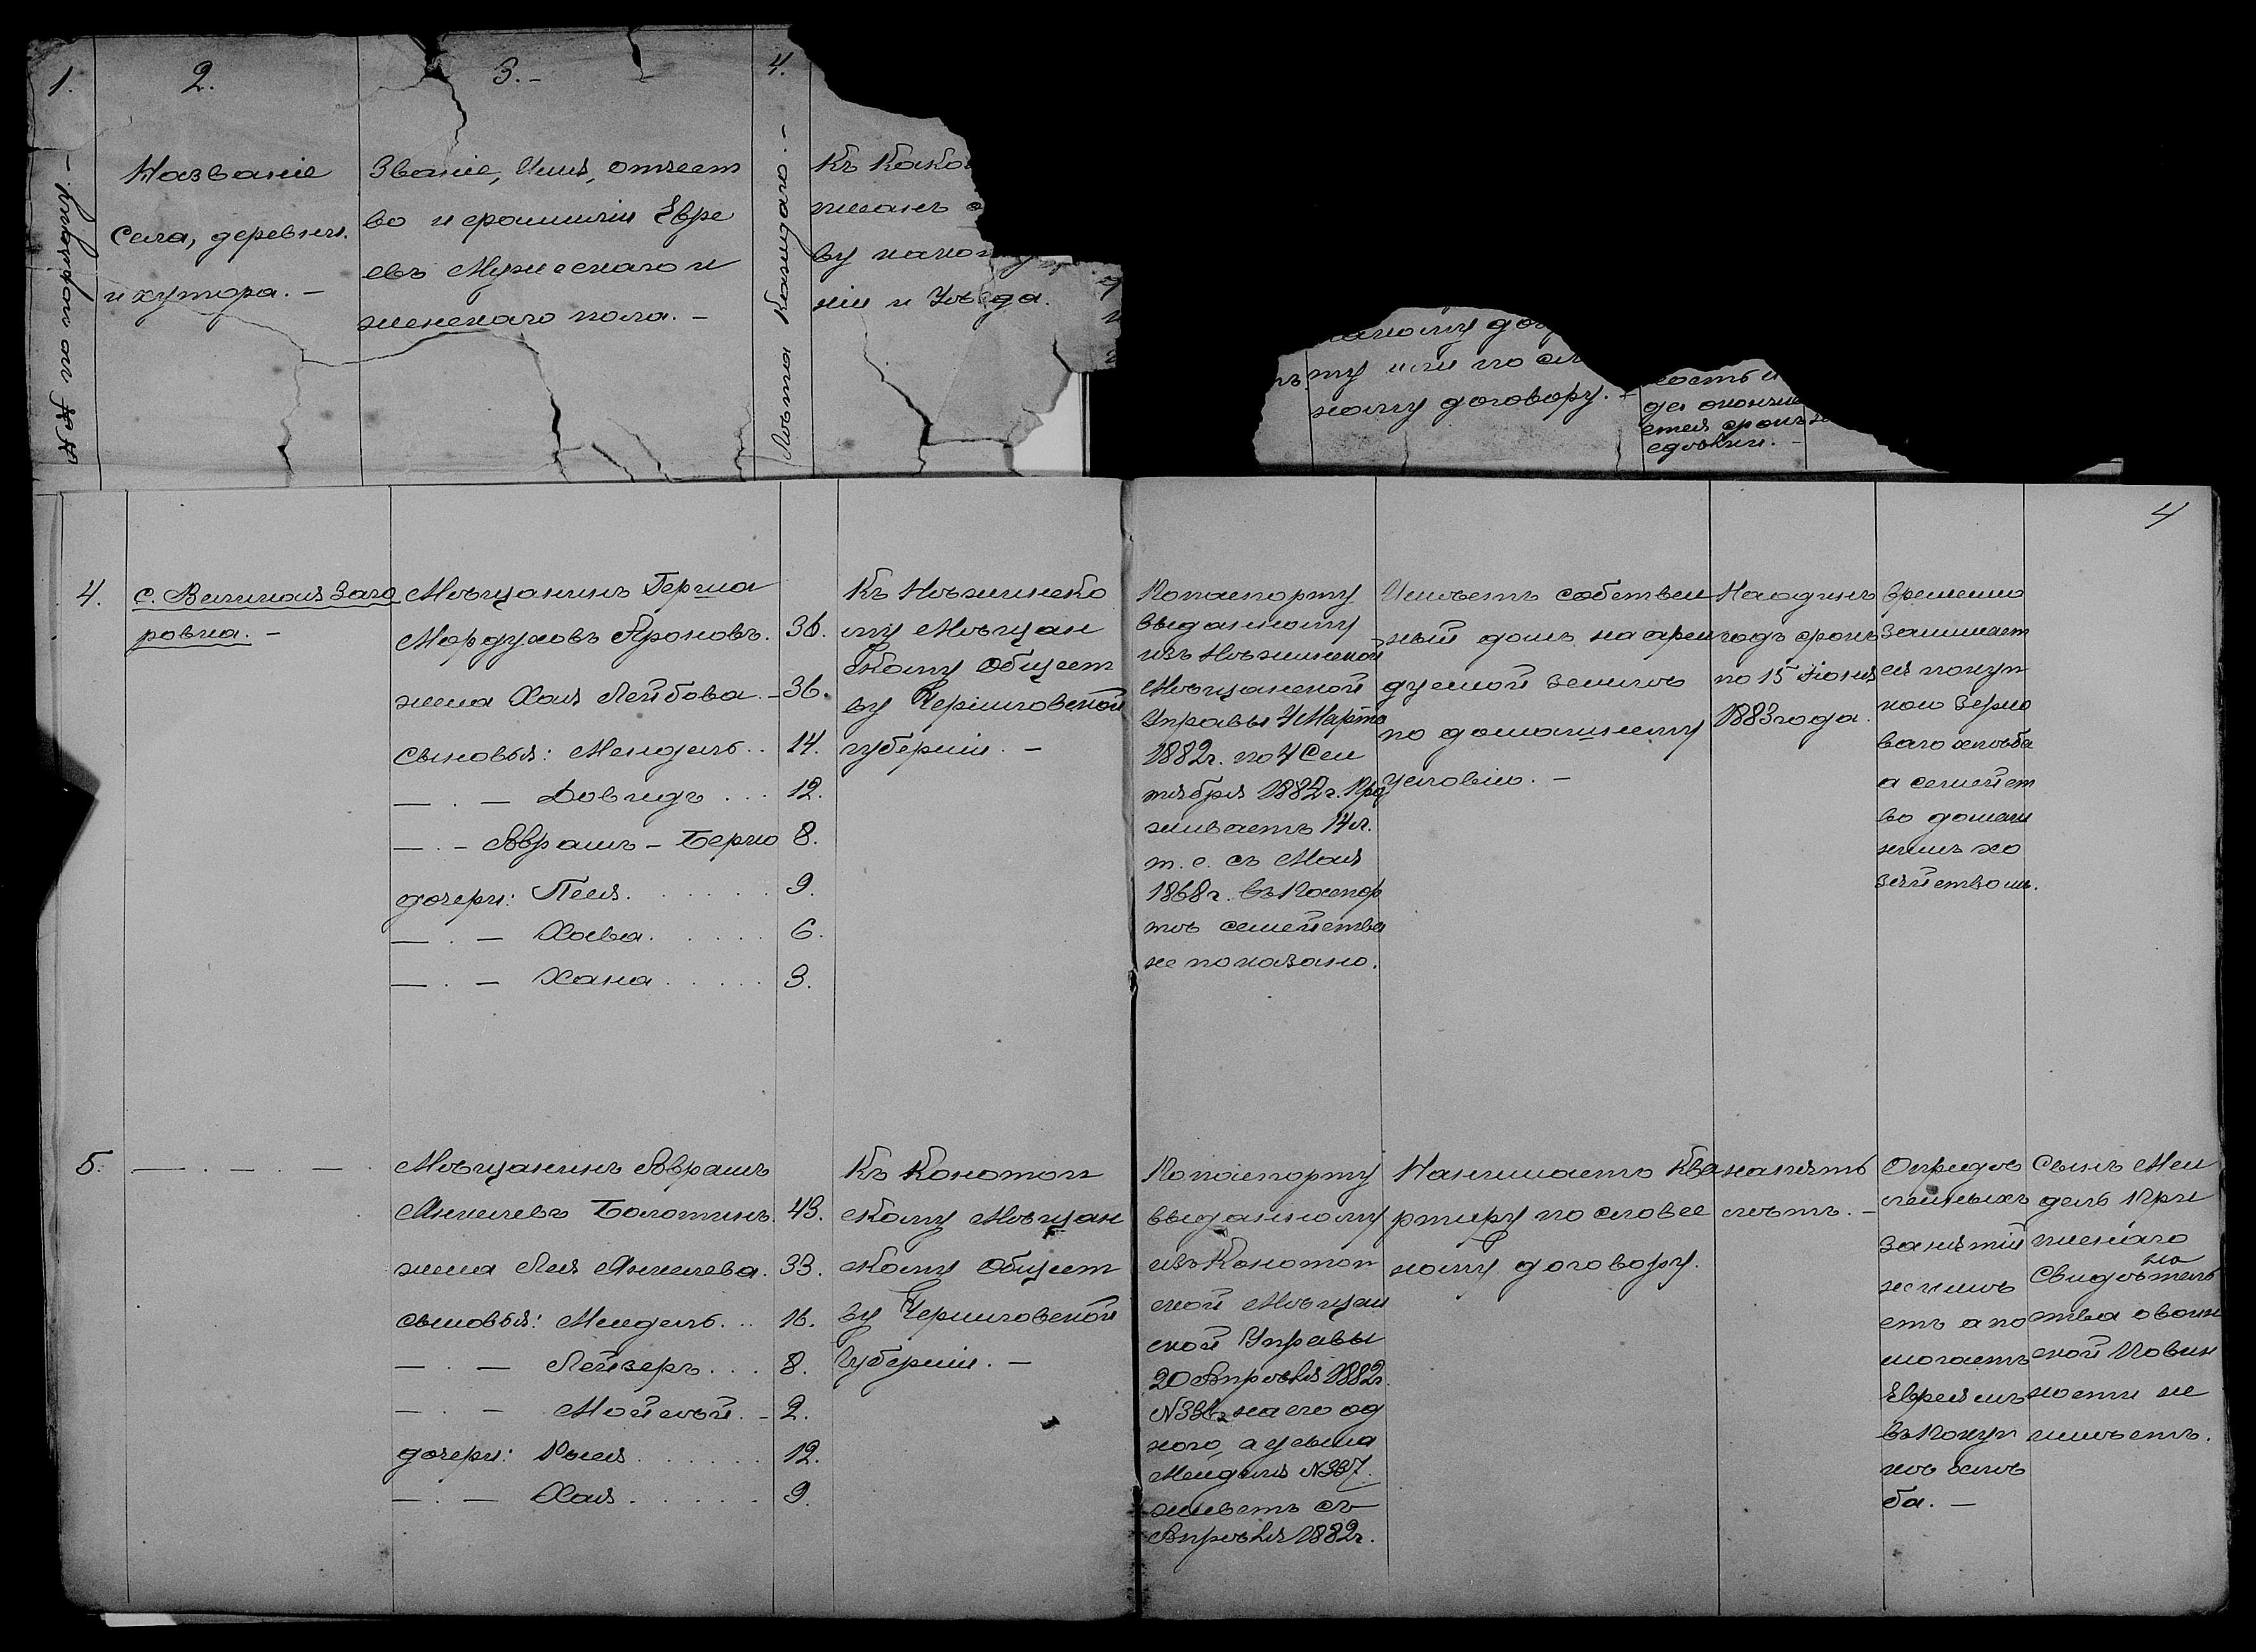 1.
№№ по порядку. –
2.
Названіе
села, деревни
и хутора. –
3. –
Званіе, Имя, отчест
во и фамиліи Евре
евъ Мужескаго и
женскаго пола. –
4.
Лѣта каждаго. –
Къ како
писанъ
ву како
ніи и Уѣзда.
му или по сл
ному договору. –
ность и
да окончи
ется срокъ
сдѣлки. –
4
4.
с. Великая Заго
ровка. –
Мѣщанинъ Герша
Мордуховъ Ароновъ. 36.
жена Хая Лейбова. – 36.
сыновья: Мендель .. 14.
— . — Довидъ ... 12.
— . – Аврамъ – Берко 8.
дочери: Песя. . . . . . 9.
— . — Хава. . . . . . 6.
— . — Хана . . . . . 3.
Къ Нѣжинско
му Мѣщан
скому Общест
ву Черниговской
губерніи. –
По паспорту
выданному
изъ Нѣжинской
Мѣщанской
Управы 4 Марта
1882г. по 4 Сен
тября 1882г. Про
живаетъ 14 л.
т. е. съ Мая
1868г. въ Паспор
тѣ семейства
не показано.
Имѣетъ собствен
ный домъ на арен
дуемой землѣ
по домашнему
условію. –
На одинъ
годъ срокъ
по 15 Іюня
1883 года.
Временно
занимает
ся покуп
кою зерно
ваго хлѣба
а семейст
во домаш
нимъ хо
зяйствомъ.
5. — . — . — .
Мѣщанинъ Аврамъ
Янкелевъ Болотинъ. 43.
жена Лея Янкелева. 33.
сыновья: Мендель. .. 16.
— . — Лейзеръ ... 8.
— . — Мойсѣй. – 2.
дочери: Рыся . . . . . . 12.
— . — Хая . . . . . . 9.
Къ Конотоп
скому Мѣщан
скому Общест
ву Черниговской
Губерніи. –
По паспорту
выданному
изъ Конотоп
ской Мѣщан
ской Управы
20 Апрѣля 1882г.
№336, на его од
ного, а у сына
Менделя №337.
живетъ съ
Апрѣля 1882г.
Нанимаетъ ква
ртиру по словес
ному договору.
на пять
лѣтъ. –
Опридѣ
ленныхъ
занятій
не имѣ
етъ а по
могаетъ
Евреямъ
въ Покуп
кѣ хлѣ
ба. –
Сынъ Мен
дель При
писнаго
на
Свидѣтель
ства о воин
ской Повин
ности не
имѣетъ.